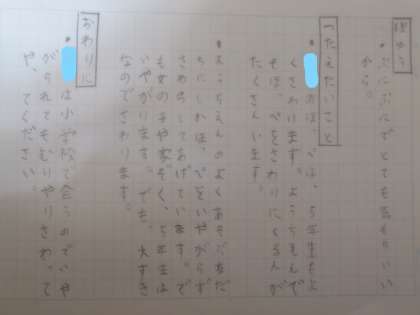 理ゆう
・ぷにぷにでとても気もちいい
から。
つたえたいこと
・のほっぺは、5年生もよ
くさわります。ようちえんや
ほっぺをさわりにくる人が
たくさんいます。
・ようちえんのよくあそぶ友だ
ちにしかほっぺをいやがらず
さわらしてあげています。で
も女の子や家ぞく、5年生は
いやがります。でも、大すき
なのでさわります。
おわりに
・は小学校で会うのでいや
がられてもむりやりさわって
やってください。